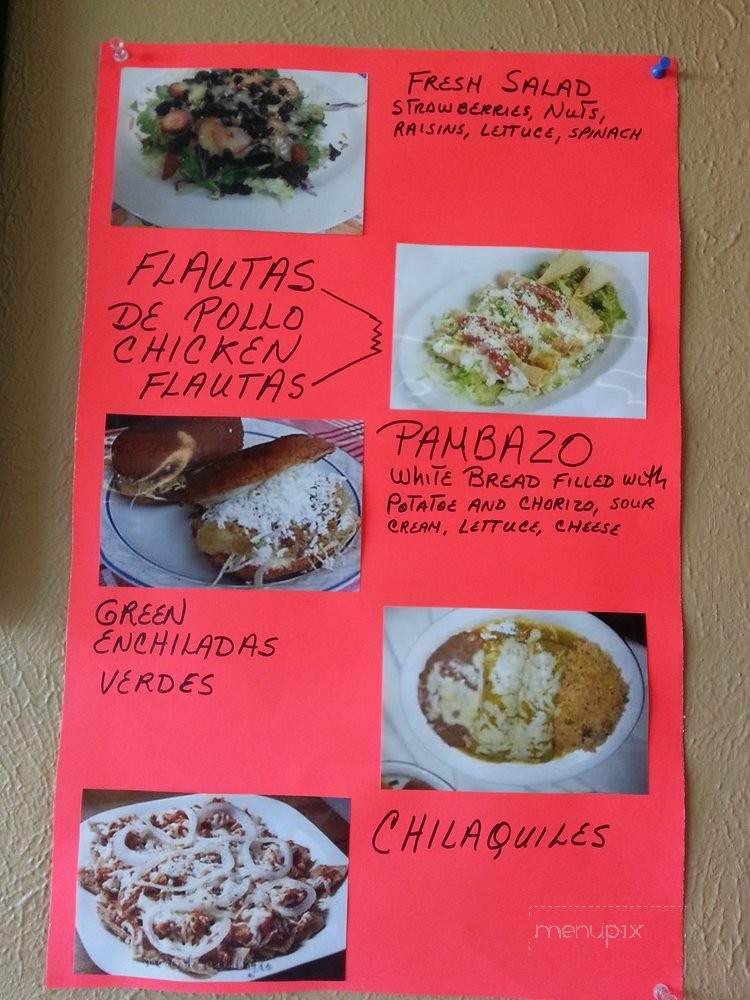 FRESH SALAD
STROWBERRIES, NUTS,
RAISINS, LETTUCE, SPINACH
FLAUTAS
DE POLLO
CHICKEN
FLAUTAS
PAMBAZO
WHITE BREAD FILLED WITH
POTATOE AND CHORIZO, SOUR
CREAM, LETTUCE, CHEESE
GREEN
ENCHILADAS
VERDES
CHILAQUILES
menupix